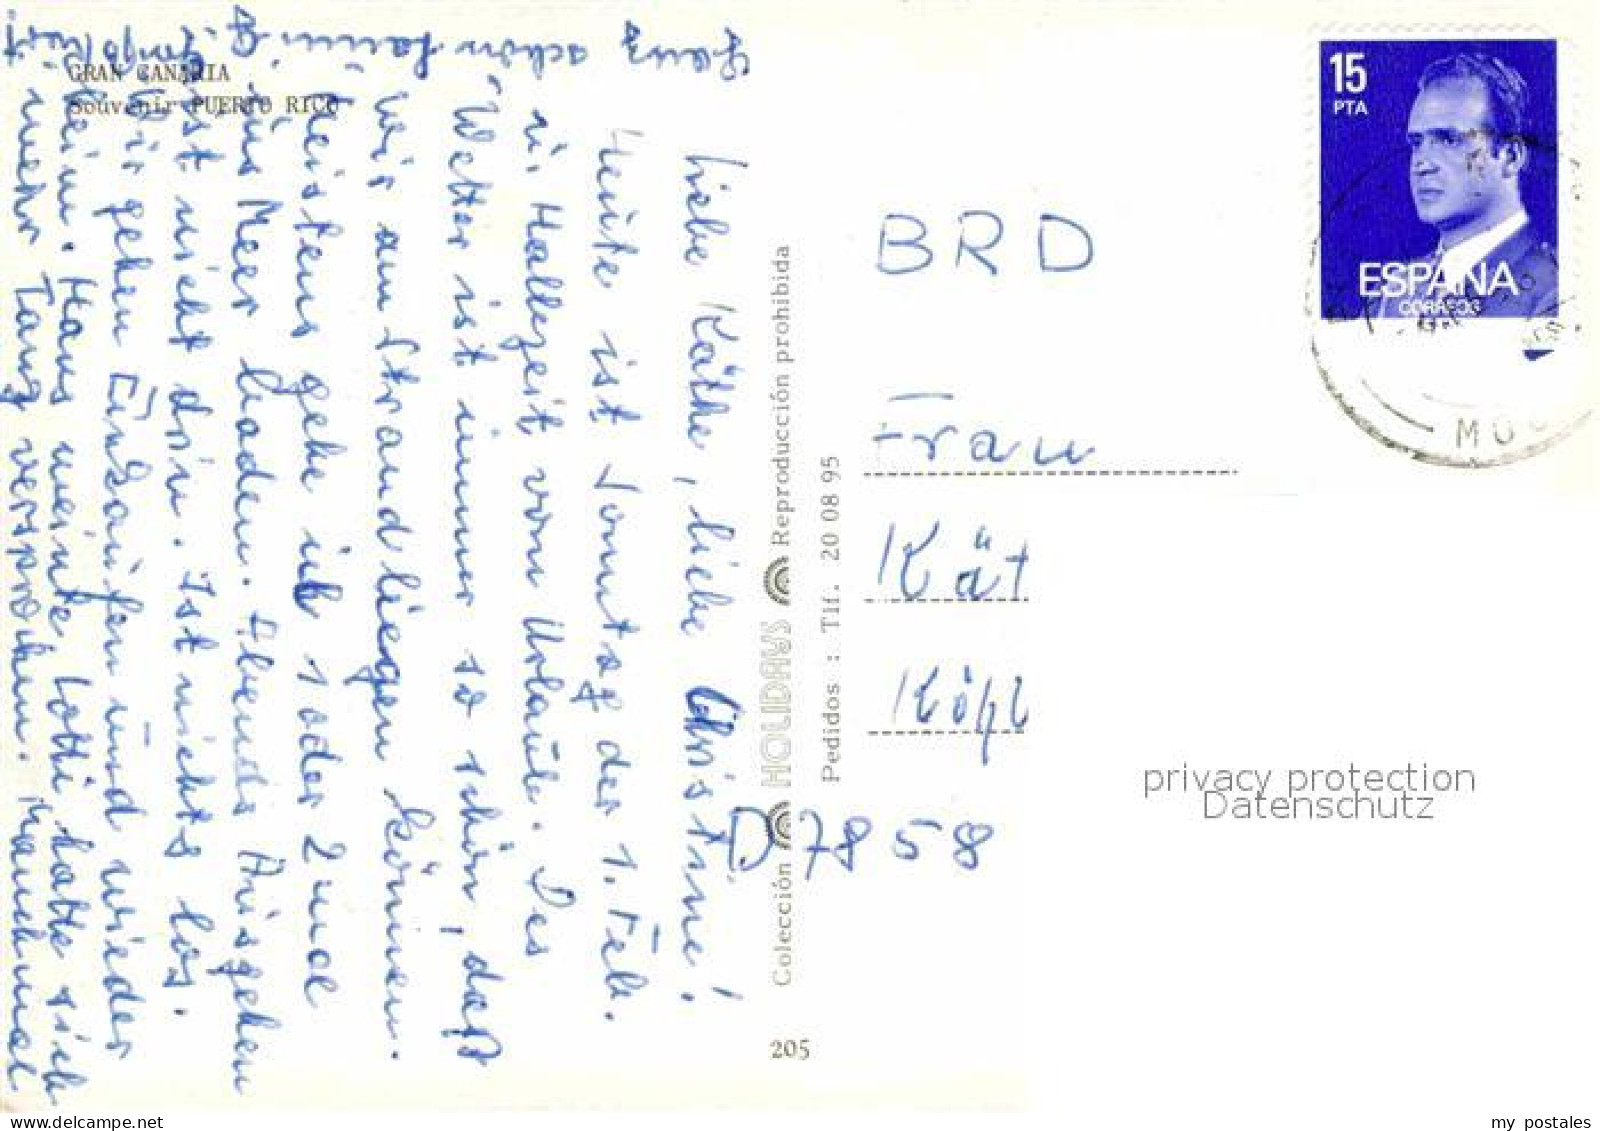 GRAN CANARIA
Souvenir PUERTO RICO
Liebe Käthe, liebe Christine!
Heute ist Sonntag der 1. Feb.
u. Halbzeit vom Urlaub. Das
Wetter ist immer so schön, daß
wir am Strand liegen können.
Meistens gehe ich 1 oder 2 mal
ins Meer baden. Abends Ausgehen
ist nicht drin. Ist nichts los.
Wir gehen Einkaufen und wieder
heim. Hans meinte, Lotti hatte sich
mehr Tanz versprochen. Manchmal
Ganz schön
Colección HOLIDAYS Reproducción prohibida
Pedidos : Tlf. 20 08 95
205
15
PTA
ESPAÑA
CORREOS
BRD
Frau
Kät
Köhl
D 7858
privacy protection
Datenschutz
www.delcampe.net
my_postales